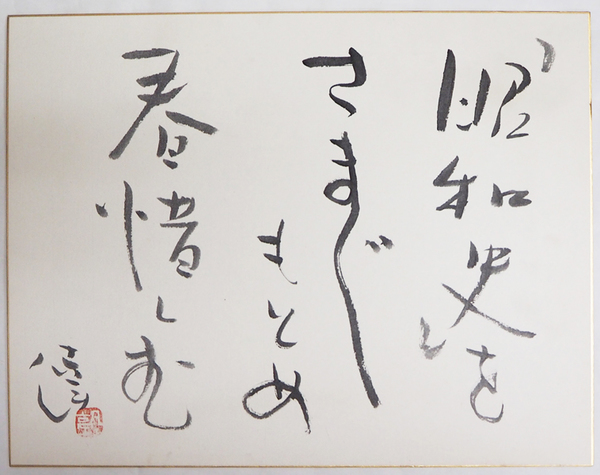 「昭和史」を
さまざま
もとめ
春惜しむ